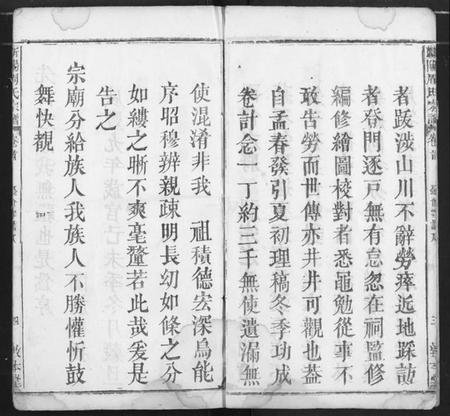 者跋涉山川不辭勞瘁近地踩訪
者登門逐戶無有怠忽在祠監修
編修繪圖校對者悉黽勉從事不
敢告勞而世傳亦井井可觀也葢
自孟春發引夏初理稿冬季功成
卷計念一丁約三千無使遺漏無
使混淆非我 祖積德宏深烏能
序昭穆辨親疎明長幼如條之分
如縷之晰不爽毫釐若此哉爰是
告之
宗廟分給族人我族人不勝懽忻鼓
舞快觀
四